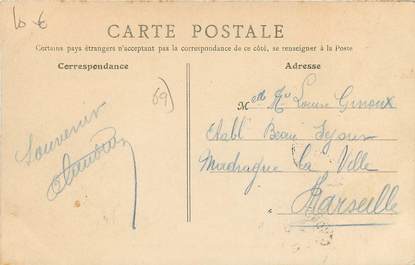 10 €
CARTE POSTALE
Certains pays étrangers n'acceptant pas la correspondance de ce côté, se renseigner à la Poste
Correspondance
Adresse
69)
Souvenir
M elle Louise Giroux
Etabl Beau Séjour
Madrague la Ville
Marseille